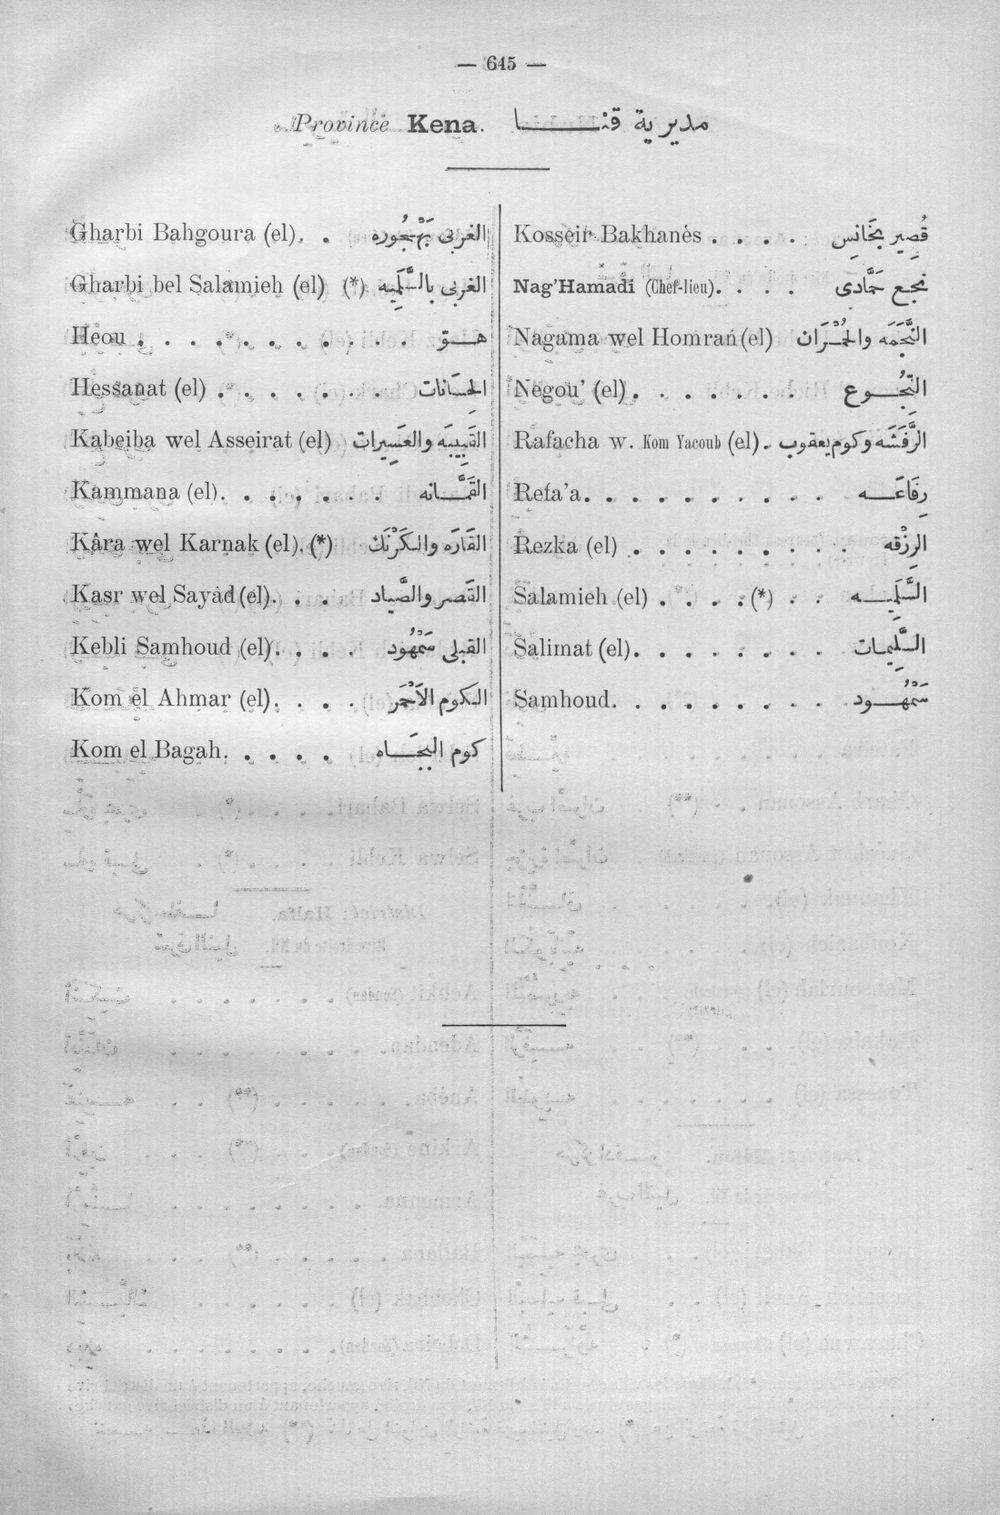 — 645 —
Province Kena. مديرية قنـــا
Gharbi Bahgoura (el). . الغربى بَهْجُوره
Gharbi bel Salamieh (el) (*) الغربى بالسَّلَمِيه
Héou . . . . . . . . . . . هـــوّ
Hessanat (el) . . . . . . . الحِسَانات
Kabeiba wel Asseirat (el) القَبِيبَه والعَسِيرات
Kammana (el). . . . . . . القَمَّـــانه
Kâra wel Karnak (el). (*) القَارَه والكَرْنَك
Kasr wel Sayâd (el). . . القَصر والصَّياد
Kebli Samhoud (el). . . . القبلى سَمْهُود
Kom el Ahmar (el). . . . الكوم الاَحْمَر
Kom el Bagah. . . . . كوم البِجَـــاه
Kosseir Bakhanès . . . . قُصِير بَخَانِس
Nag'Hamadi (Chef-lieu). . . . نجع حَمَّادى
Nagama wel Homran (el) النَّجَمَه والحُمْـرَان
Négou' (el). . . . . . . النِّجُـــوع
Rafacha w. Kom Yacoub (el). الرَّفَشَه وكوم يعقوب
Refa'a. . . . . . . . . رِفَاعَـــه
Rezka (el) . . . . . . . . . الرِزْقه
Salamieh (el) . . . . (*) . . السَّلَمِيـــه
Salimat (el). . . . . . . . السَّلِيمات
Samhoud. . . . . . . . . سَمْهُـــود